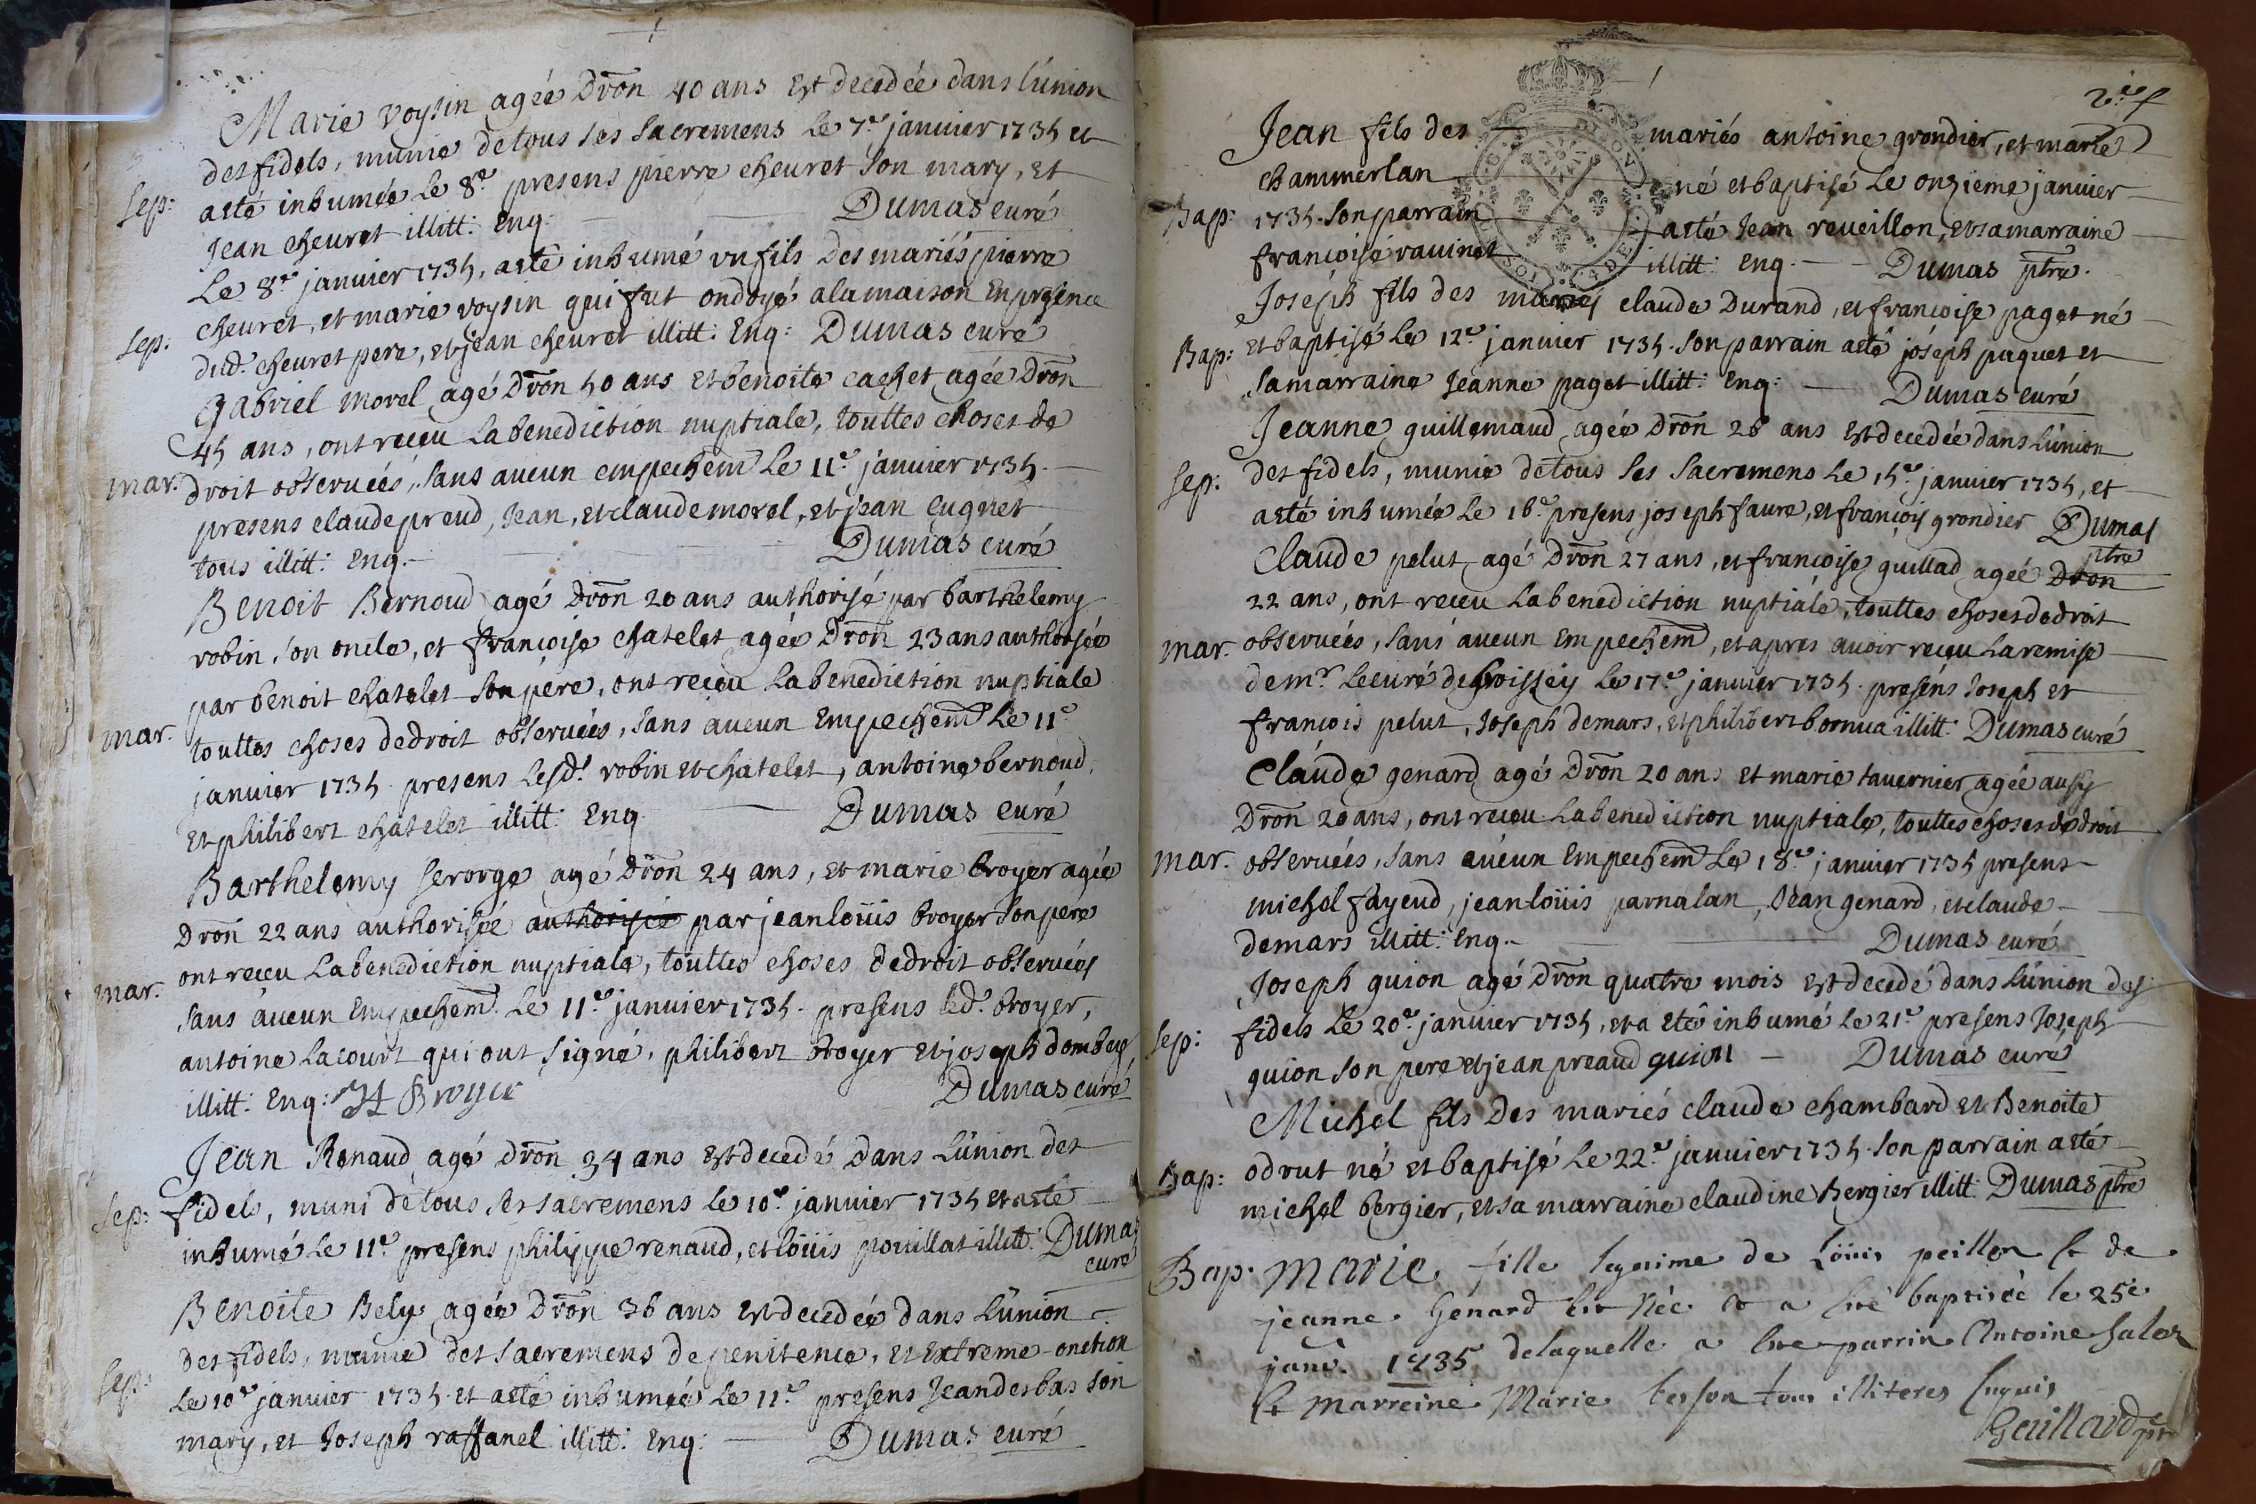 Marie voysin agéé Dron 40 ans Est decedéé dans l'union
des fidels, munie de tous ses sacremens Le 7.e janvier 1735 et
Sep: a eté inhuméé Le 8.e presens pierre cheuret son mary, et
Jean cheuret illitt: Enq. Dumas curé
Le 8.e janvier 1735, a eté inhumé un fils Des mariés pierre
cheuret, et marie voysin qui fut ondoyé a la maison En presence
Sep: dud. cheuret pere, et jean cheuret illitt: Enq: Dumas curé
Gabriel morel agé Dron 50 ans et benoite cachet agéé Dron
45 ans, ont reçeu La benediction nuptiale, touttes choses de
mar. droit observéés, sans aucun empechem Le 11.e janvier 1735.
presens claude preud, Jean, et claude morel, et jean cugnet
tous illitt: Enq. Dumas curé
Benoit Bernoud agé Dron 20 ans authorisé par barthelemy
robin son oncle, et françoise chatelet agéé Dron 23 ans authorisée
par benoit chatelet son pere, ont reçeu La benediction nuptiale
mar. touttes choses de droit observéés, sans aucun Empechem Le 11.e
janvier 1735. presens Lesd.s robin et chatelet, antoine bernoud,
Et philibert chatelet illitt: Enq Dumas curé
Barthelemy serorge agé Dron 24 ans, et marie broyer agéé
Dron 22 ans authoriséé authoriséé par jean loüis broyer son pere
ont reçeu La benediction nuptiale, touttes choses de droit observéés
mar. sans aucun Empechem. Le 11.e janvier 1735. presens led. broyer,
antoine Lacourt qui ont signé, philibert broyer et joseph dombey
illitt: Enq: Broyer Dumas curé
Jean Renaud agé Dron 34 ans Est decedé Dans L'union des
Sep: fidels, muni de tous ses sacremens Le 10.e janvier 1735 et a eté
inhumé Le 11.e presens philippe renaud, et loüis pouillat illitt: Dumas
curé
Benoite Bely agéé Dron 36 ans Est decedéé dans L'union
des fidels, munie des sacremens de penitence, et Extreme-onction
Sep: Le 10.e janvier 1735 et a eté inhuméé Le 11.e presens Jean desbas son
mary, et Joseph raffanel illitt: Enq: Dumas curé
2.e f
Jean fils des mariés antoine grondier, et marie
chammerlan né et baptisé Le onzieme janvier
Bap: 1735. son parrain a eté Jean reveillon, et sa marraine
françoise ravinet illitt: Enq. Dumas ptre.
Joseph fils des mariés claude Durand, et françoise paget né
Bap: et baptisé Le 12.e janvier 1735. son parrain a eté joseph puquet et
sa marraine Jeanne paget illitt: Enq: Dumas curé
Jeanne guillemaud agéé Dron 26 ans Est decedéé dans L'union
Sep: des fidels, munie de tous ses sacremens Le 15.e janvier 1735, et
a eté inhuméé Le 16.e presens joseph faure, et françois grondier Dumas
ptre
Claude pelut agé Dron 27 ans, et françoise guillad agéé Dron
22 ans, ont reçeu La benediction nuptiale, touttes choses de droit
mar. observéés, sans aucun Empechem, et apres avoir reçeu La remise
de m.r Le curé de boissey Le 17.e janvier 1735. presens Joseph et
françois pelut, Joseph demars, et philibert bornua illitt: Dumas curé
Claude genard agé Dron 20 ans et marie tavernier agéé aussy
Dron 20 ans, ont reçeu La benediction nuptiale, touttes choses de droit
mar. observéés, sans aucun Empechem Le 18.e janvier 1735 presens
michel fayend, jean loüis parnalan, Jean genard, et claude
demars illitt: Enq. Dumas curé
Joseph guion agé Dron quatre mois Est decedé dans L'union des
Sep: fidels Le 20.e janvier 1735, et a eté inhumé Le 21.e presens Joseph
guion son pere et jean preaud guion Dumas curé
Michel fils Des mariés claude chambard et Benoite
Bap: odrut né et baptisé Le 22.e janvier 1735. son parrain a eté
michel bergier, et sa marraine claudine Bergier illitt: Dumas ptre
Bap. Marie fille legitime de Loüis peillon et de
jeanne Genard est née et a eté baptiséé le 25e.
janv. 1735 de laquelle a été parrin Antoine
et marreine Marie besson tous illiteres Enquis
Geuillaud ptr